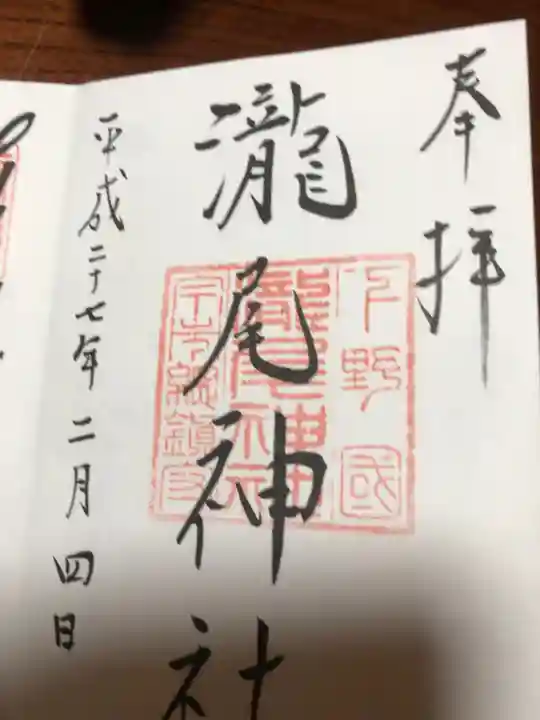 奉拝
下野國
瀧尾神社
瀧尾神社
平成二十七年二月四日